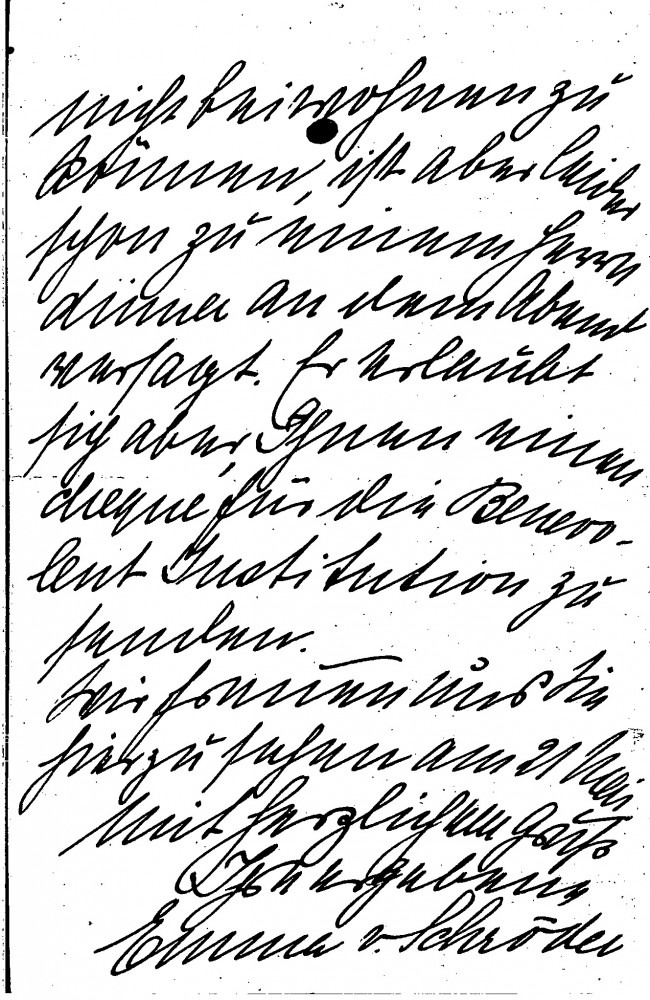 nicht beiwohnen zu
können, ist aber leider
schon zu einem Herrn
dinner an dem Abend
versagt. Er erlaubt
sich aber, Ihnen einen
cheque für die Benevo-
lent Institution zu
senden.
Wir freuen uns Sie
hier zu sehen am 21 Mai
Mit herzlichem Gruß
Ihre ergebene
Emma v. Schröder